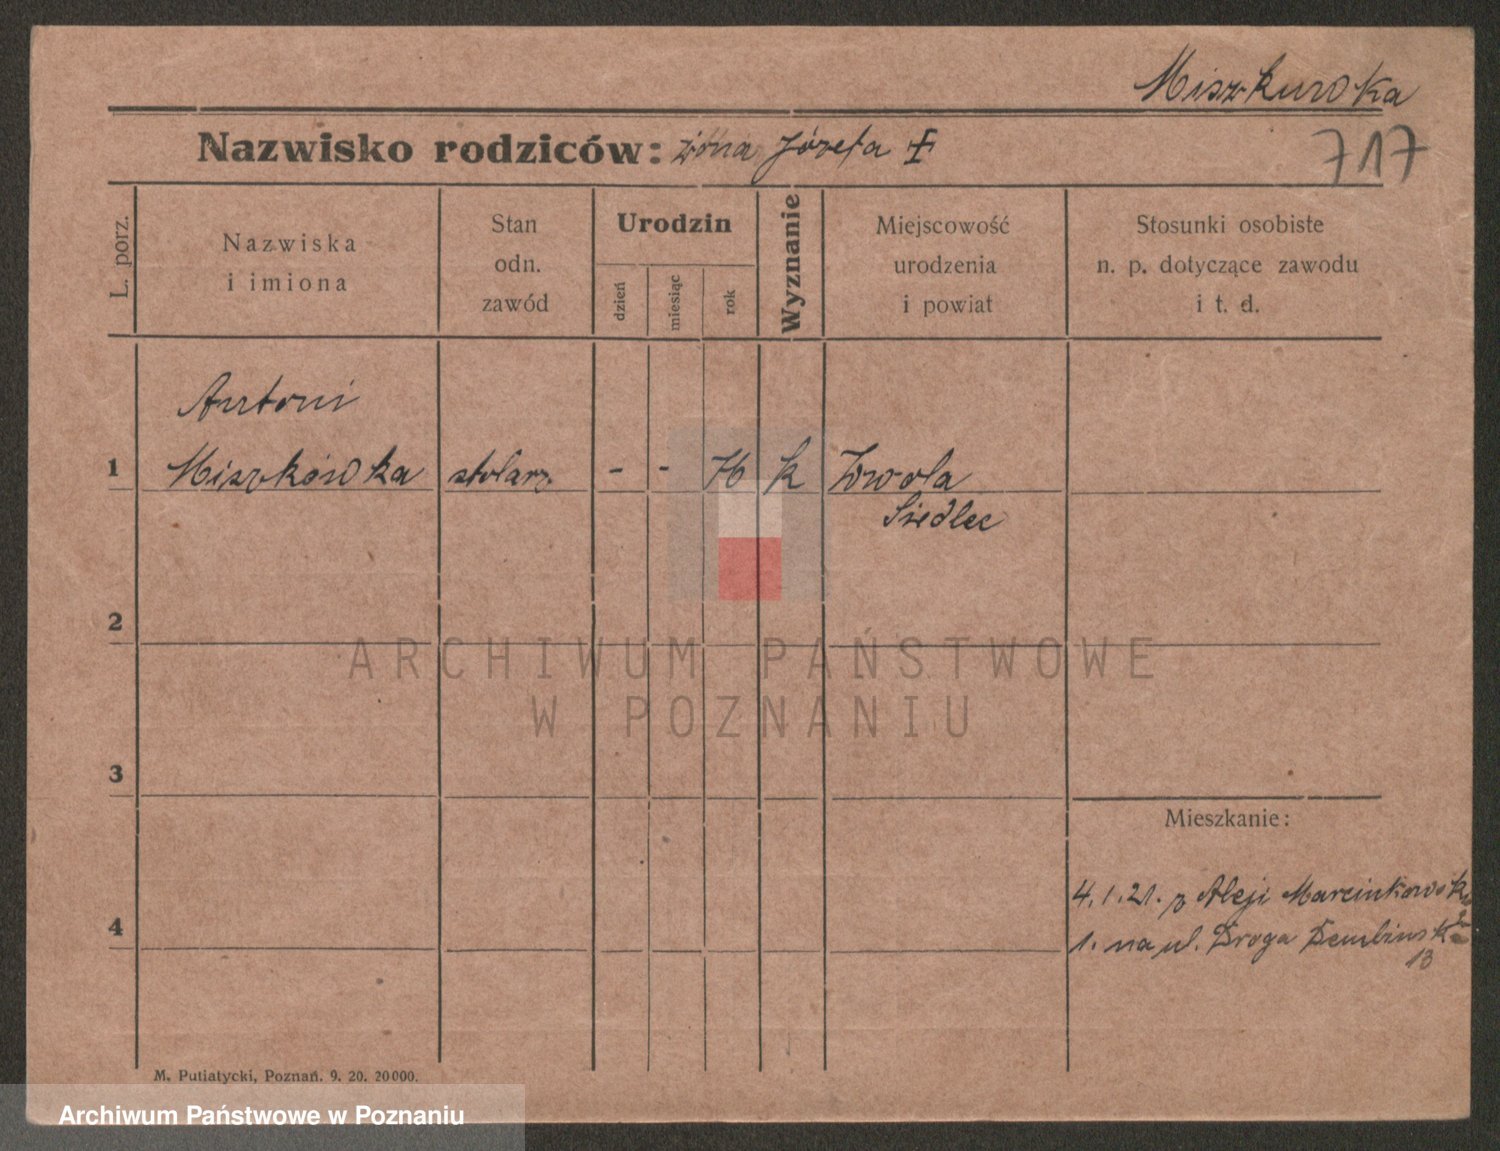 Miszkuroka
717
Nazwisko rodziców: żona Józefa †
L. porz.
Nazwiska
i imiona
Stan
odn.
zawód
Urodzin
dzień
miesiąc
rok
Wyznanie
Miejscowość
urodzenia
i powiat
Stosunki osobiste
n. p. dotyczące zawodu
i t. d.
Antoni
1 Miszkówka stolarz - - 76 k Zwola
Siedlec
2
ARCHIWUM PAŃSTWOWE
W POZNANIU
3
Mieszkanie:
4.1.21. z Aleji Marcinkowsk
4 1. na ul. Droga Dembinsk
13
M. Putiatycki, Poznań. 9. 20. 20000.
Archiwum Państwowe w Poznaniu